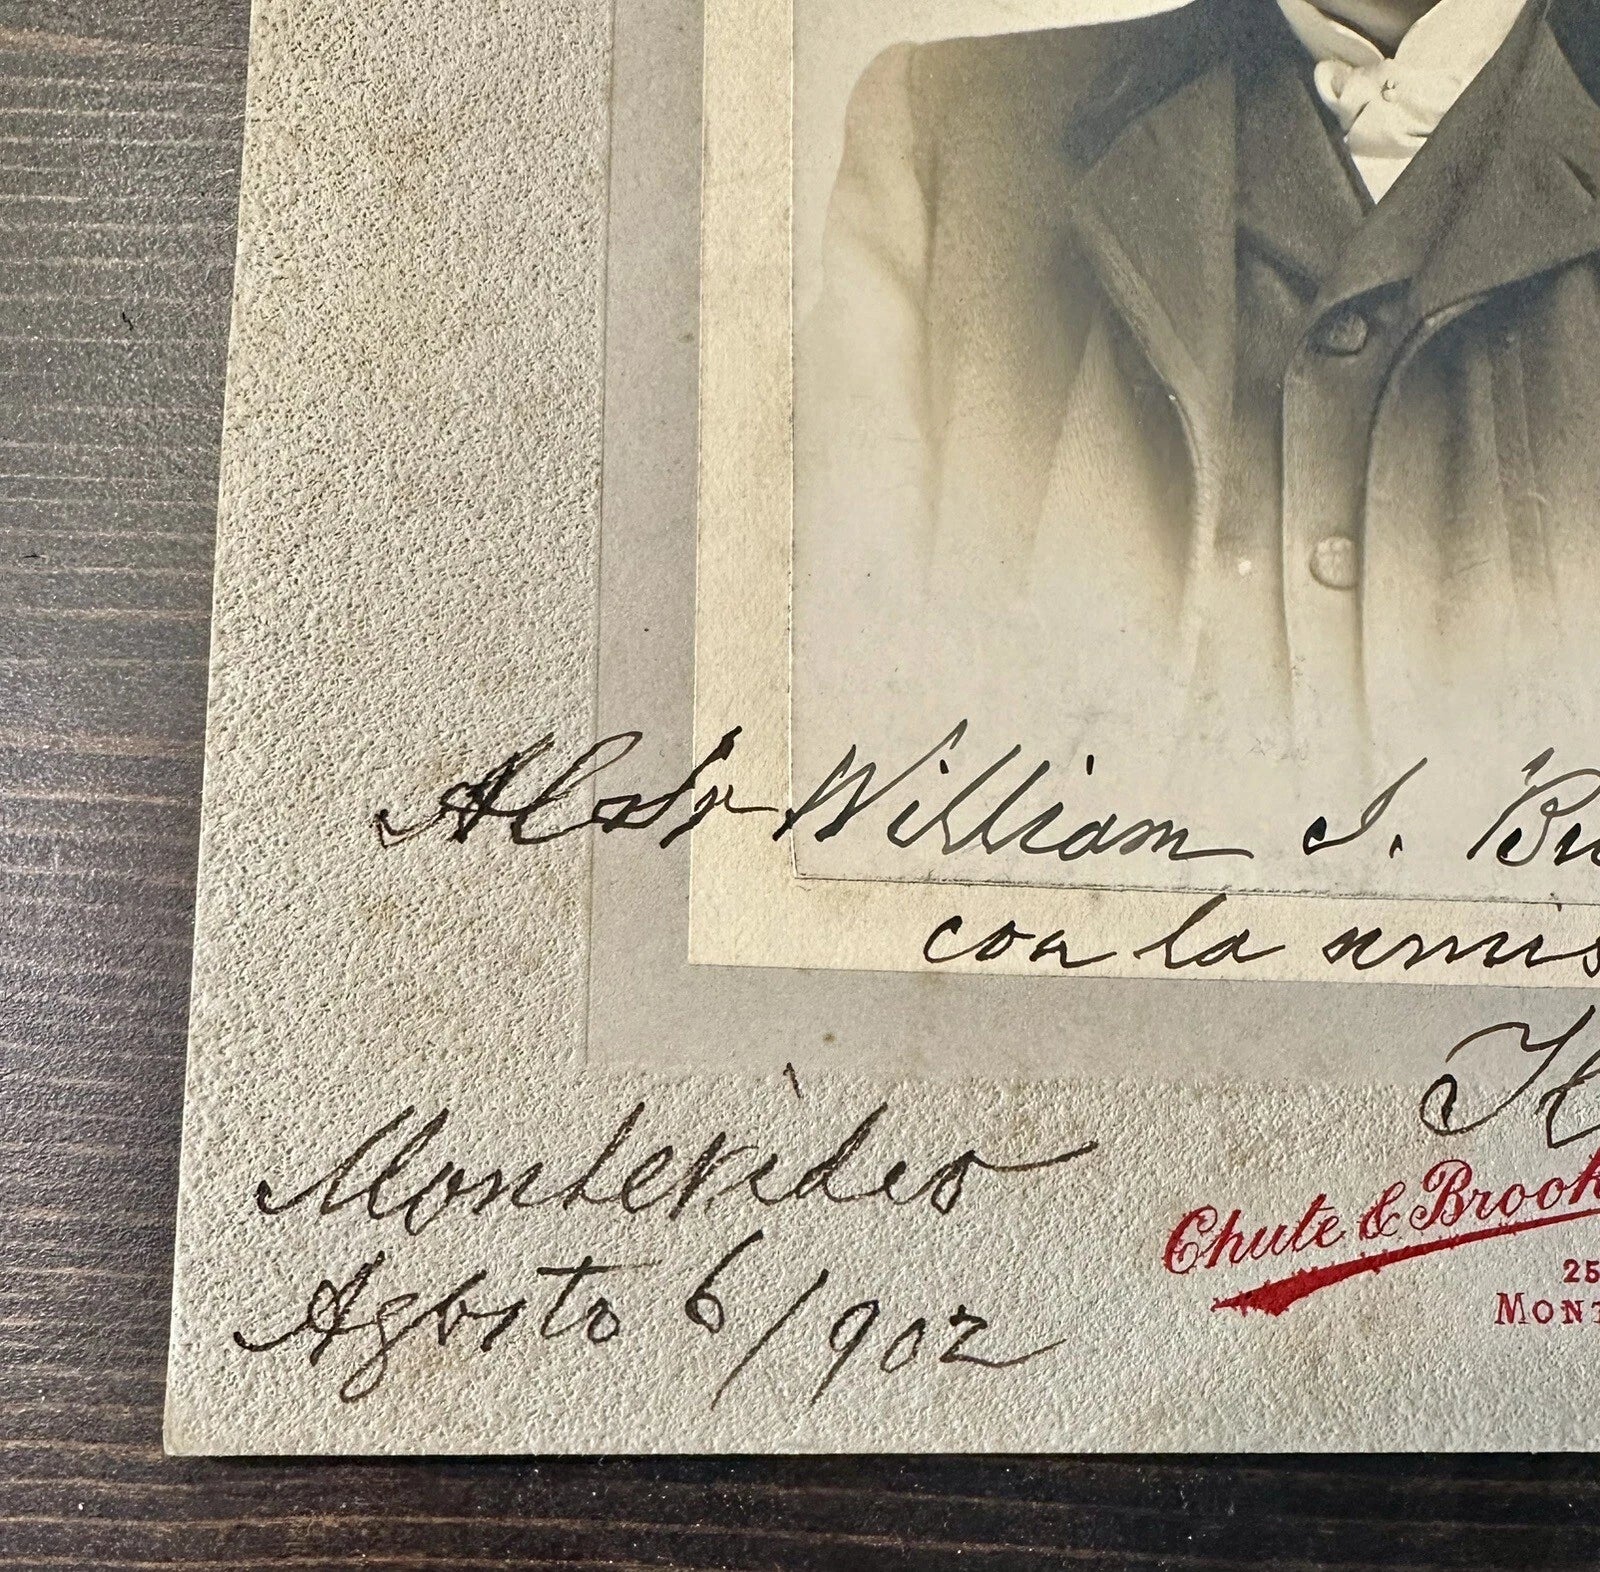 Al Sr William I. Bu
con la amis
Montevideo
Agosto 6/902
Chute & Brook
25
MONT